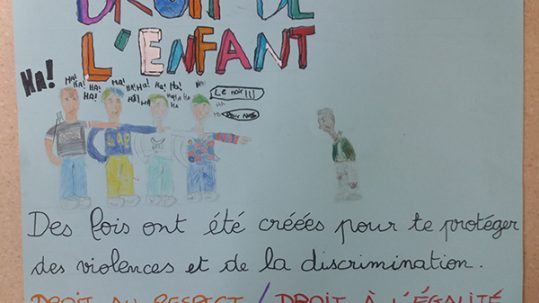 DROIT DE
L'ENFANT
HA!
HA! HA! HA! HA! HA! HA! HA!
Le noir!!!
Des lois ont été créées pour te protéger
des violences et de la discrimination.
DROIT AU RESPECT / DROIT À L'ÉGALITÉ